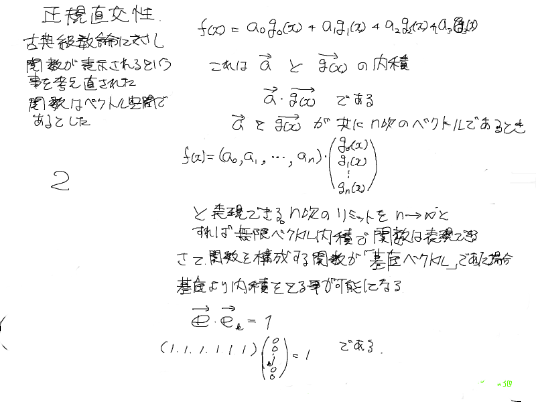 正規直交性.
古典級数論に対し
関数が表示されるという
事を考え直された
関数はベクトル空間で
あるとした
2
f(x) = a₀g₀(x) + a₁g₁(x) + a₂g₂(x) + a₃g₃(x)
これは a⃗ と g⃗(x) の内積
a⃗・g⃗(x) である
a⃗ と g⃗(x) が共に n次のベクトルであるとき
f(x)=(a₀, a₁, ⋯, aₙ)・(g₀(x) g₁(x) ⋮ gₙ(x))
と表現できる。n次のリミットを n→∞と
すれば無限ベクトル内積で関数は表現できる
さて、関数を構成する関数が「基底ベクトル」であた場合
基底より内積をとる事が可能になる
e⃗・e⃗ₖ = 1
(1.1.1.1.1.1) (0 0 1 0 0) = 1 である.